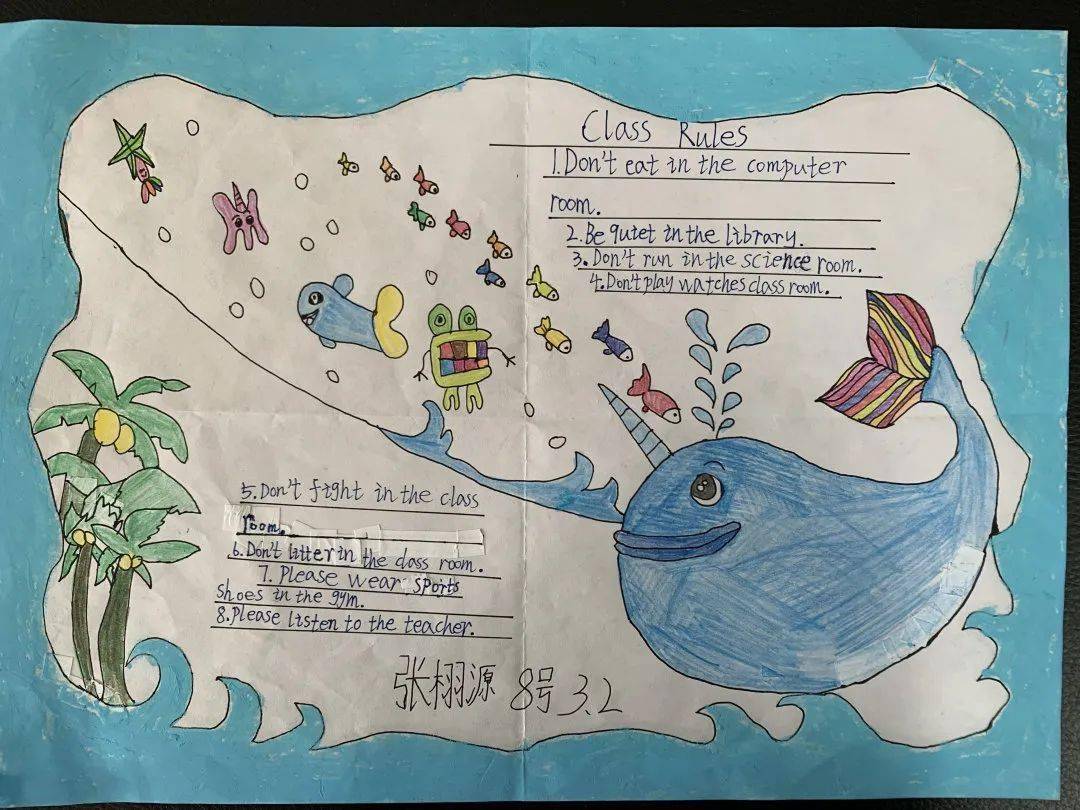 Class Rules
1.Don't eat in the computer
room.
2.Be quiet in the library.
3.Don't run in the science room.
4.Don't play watches class room.
5.Don't fight in the class
room.
6.Don't litter in the class room.
7.Please wear sports
shoes in the gym.
8.Please listen to the teacher.
张栩源 8号 3.2